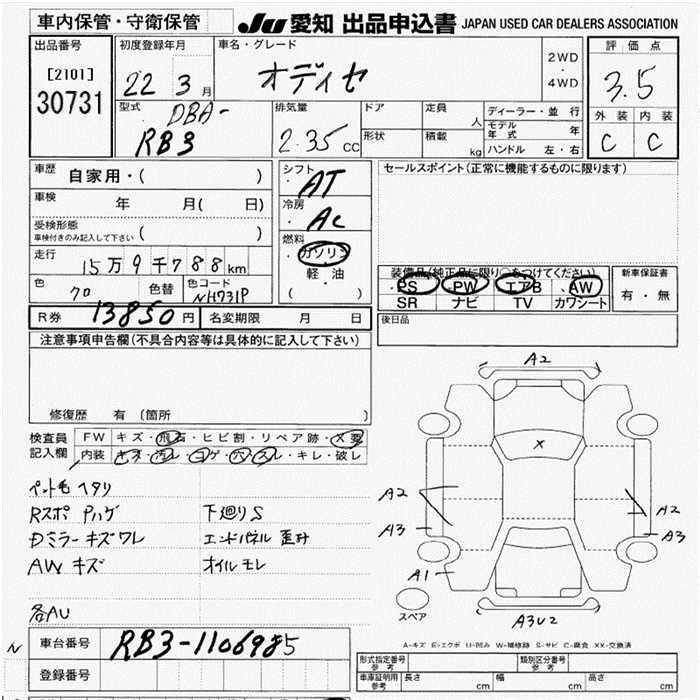 車内保管・守衛保管
JU 愛知 出品申込書 JAPAN USED CAR DEALERS ASSOCIATION
出品番号
[2101]
30731
初度登録年月
22 3月
車名・グレード
オディセ
2WD
・
4WD
評価点
3.5
外装 内装
C C
型式
DBA-
RB3
排気量
2.35cc
ドア
形状
定員
人
積載
kg
ディーラー・並行
モデル年式 年
ハンドル 左・右
車歴
自家用・( )
車検
年 月( 日)
受検形態
車検付きのみ記入して下さい ( )
走行
15万9千788km
色
クロ
色替
色コード
NH731P
シフト
・AT
冷房
・AC
燃料
ガソリン
軽・油
( )
セールスポイント(正常に機能するものに限ります)
装備品(純正品に限り○をつけてください)
・PS ・PW エアB ・AW
SR ナビ TV カワシート
新車保証書
有・無
後日品
R券 13850円
名変期限 月 日
注意事項申告欄(不具合内容等は具体的に記入して下さい)
修復歴 有(箇所 )
検査員
記入欄
FW キズ・飛石・ヒビ割・リペア跡・X要
内装 キズ・汚レ・コゲ・穴・スレ・キレ・破レ
ペット毛 ヘタリ
Rスポ Pハゲ 下廻りS
Dミラーキズワレ エンドパネル 歪み
AW キズ オイルモレ
各AU
A2
X
A2
A3
A1
A2
A3
A3U2
スペア
A-キズ E-エクボ U-凹み W-補修跡 S-サビ C-腐食 XX-交換済
N
車台番号 RB3-1106985
登録番号
形式指定番号
参考
類別区分番号
参考
車庫証明用
参考
長さ cm 幅 cm 高さ cm